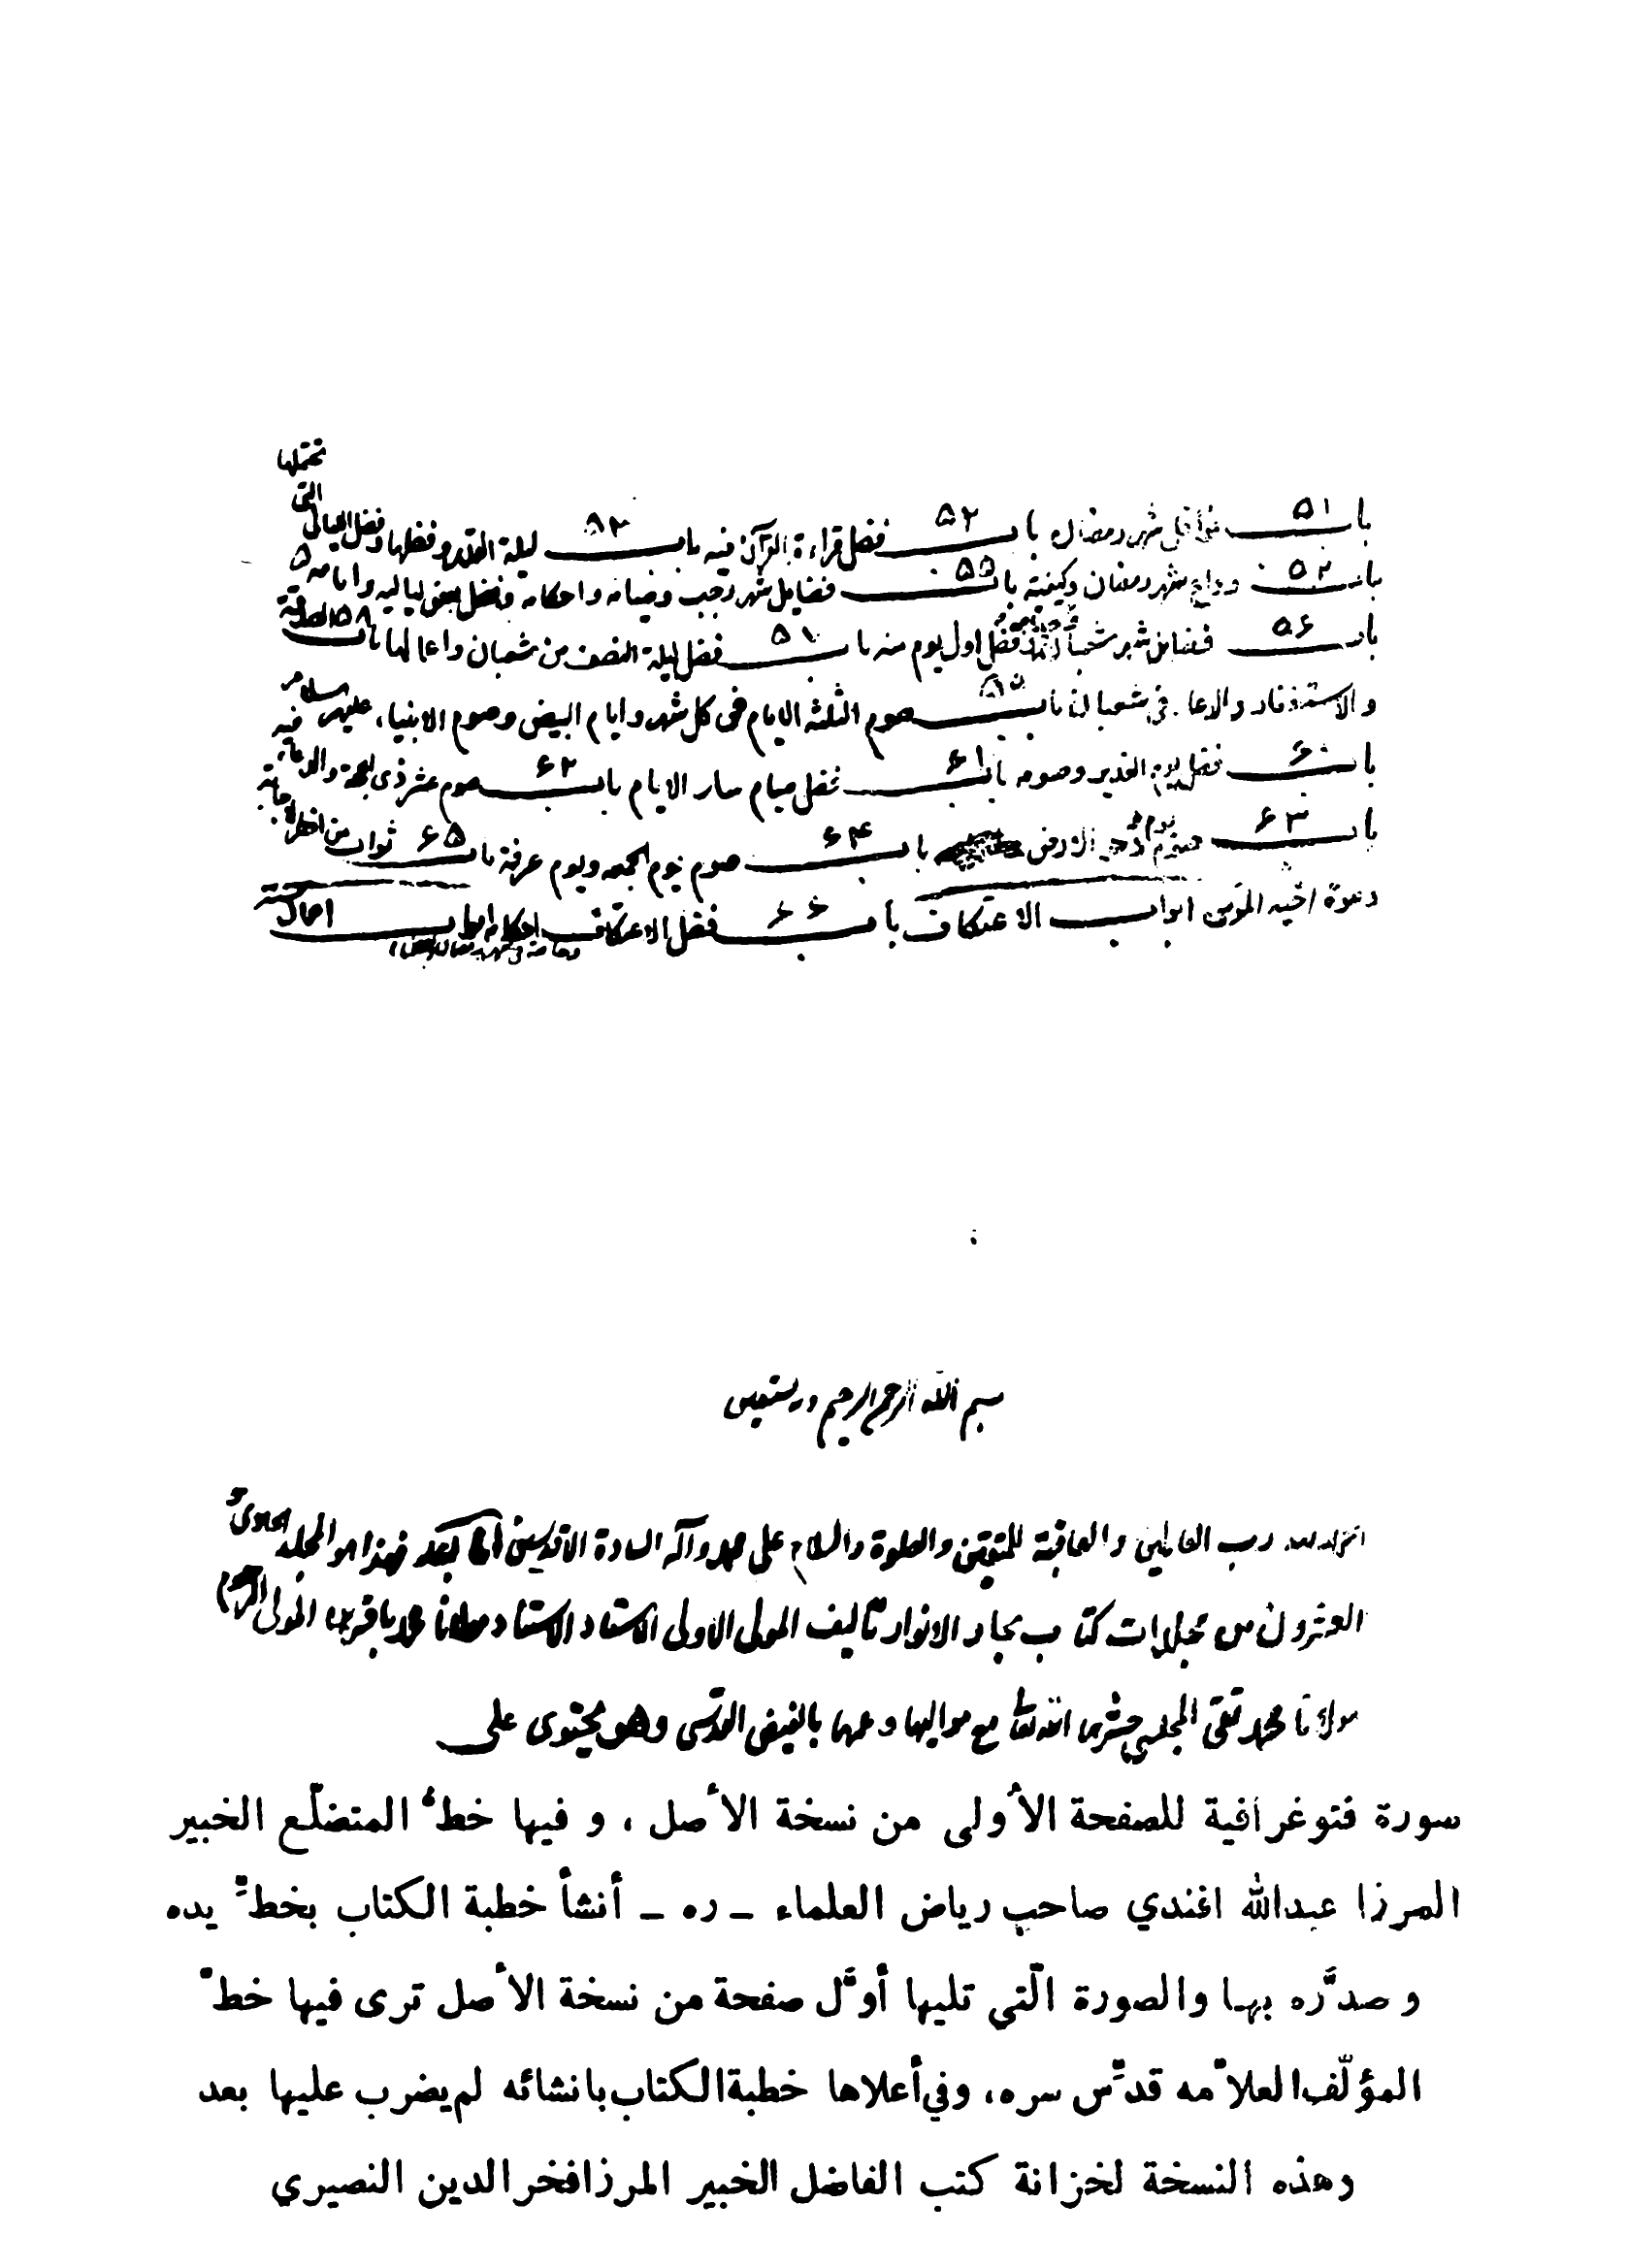 باب ۵۱ نوافل شهر رمضان باب ۵۲ فضل قراءة القرآن فيه باب ۵۳ ليلة القدر وفضلها وفضل الليالي التي تحتملها
باب ۵۴ وداع شهر رمضان وكيفيته باب ۵۵ فضايل شهر رجب وصيامه واحكامه وفضل بعض لياليه وايامه
باب ۵۶ فضايل شهر شعبان فضل اول يوم منه باب ۵۷ فضل ليلة النصف من شعبان واعمالها باب ۵۸ الصدقة
والاستغفار والدعاء في شعبان باب ۵۹ صوم الثلثه الايام في كل شهر وايام البيض وصوم الانبياء عليهم السلام
باب ۶۰ فضل يوم الغدير وصومه باب ۶۱ فضل صيام ساير الايام باب ۶۲ صوم عشر ذى الحجة والدعاء فيه
باب ۶۳ صوم يوم دحو الارض باب ۶۴ صوم يوم الجمعه ويوم عرفة باب ۶۵ ثواب من افطر لاجابة
دعوة اخيه المؤمن ابواب الاعتكاف باب ۶۶ فضل الاعتكاف
بسم الله الرحمن الرحيم وبه نستعين
الحمد لله رب العالمين والعاقبة للمتقين والصلوة والسلام على محمد وآله السادة الاقدسين اما بعد فهذا هو المجلد
العشرون من مجلدات كتاب بحار الانوار تأليف المولى الاولى الاستاد الاستناد مولانا محمد باقر بن المولى
مولانا محمد تقى المجلسي حشرهما الله مع مواليهما وعمهما بالفيض القدسى وهو يحتوى على
صورة فتوغرافية للصفحة الأولى من نسخة الأصل ، و فيها خطّ المتضلّع الخبير
المرزا عبدالله افندي صاحب رياض العلماء ـ ره ـ أنشأ خطبة الكتاب بخطّ يده
و صدَّره بها والصورة الّتي تليها أوَّل صفحة من نسخة الأصل ترى فيها خطّ
المؤلّف العلاّمه قدِّس سره، وفي أعلاها خطبة الكتاب بانشائه لم يضرب عليها بعد
وهذه النسخة لخزانة كتب الفاضل الخبير المرزا فخر الدين النصيري